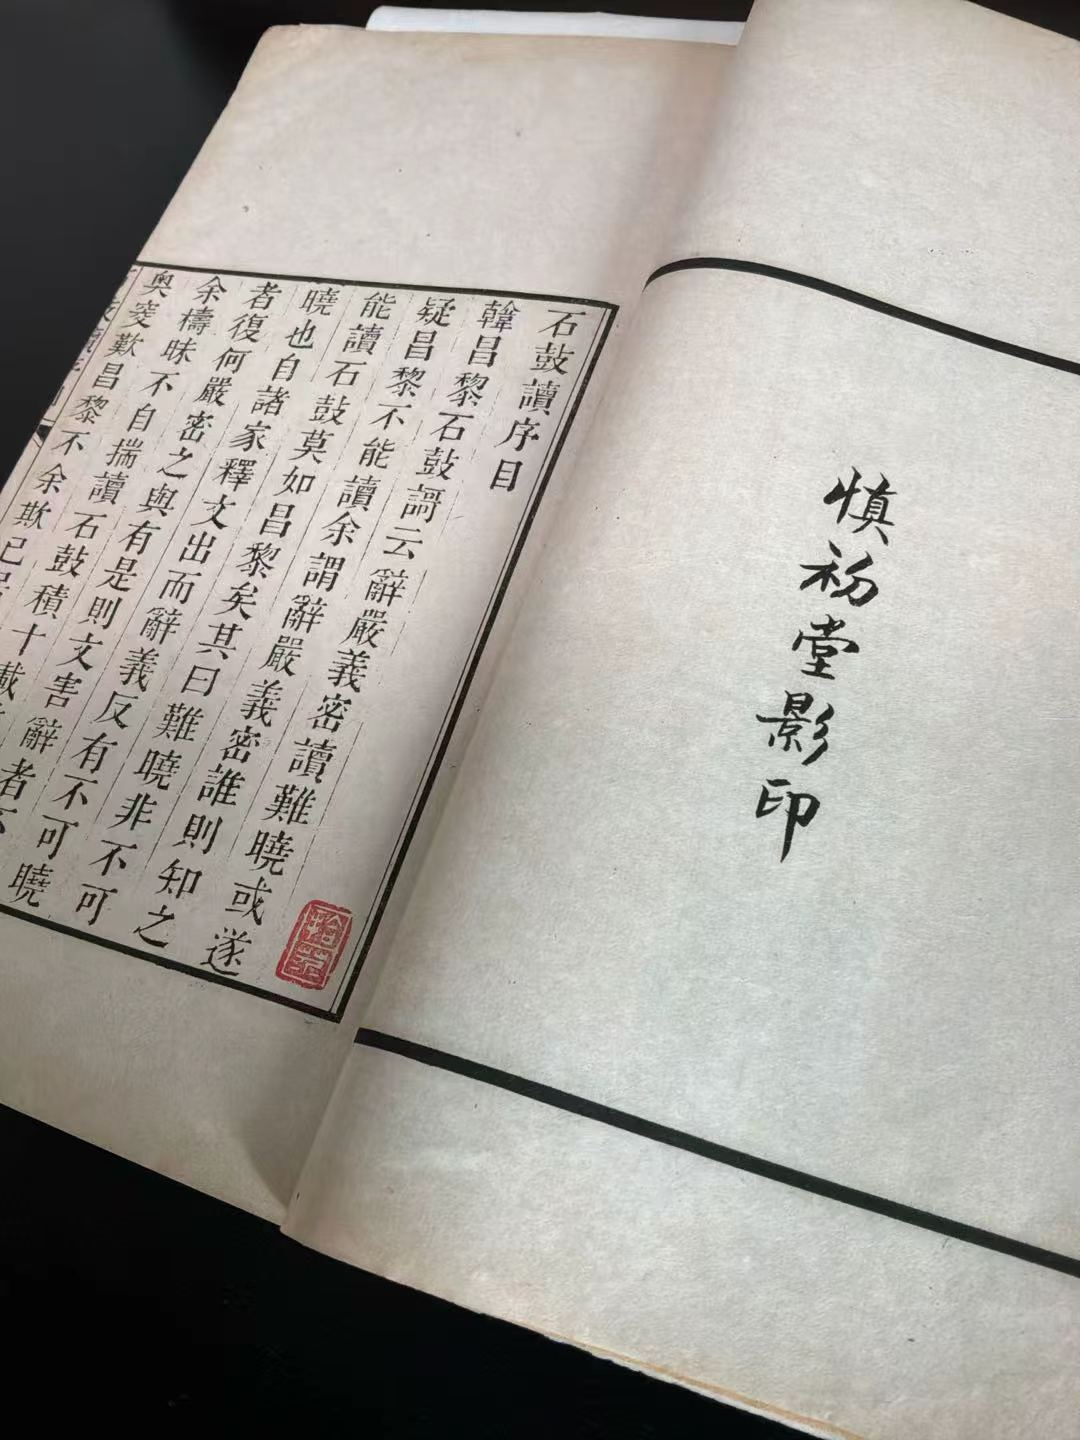 慎初堂影印
石鼓讀序目
韓昌黎石鼓謌云辭嚴義密讀難曉或遂
疑昌黎不能讀余謂辭嚴義密誰則知之
能讀石鼓莫如昌黎矣其曰難曉非不可
曉也自諸家釋文出而辭義反有不可曉
者復何嚴密之與有是則文害辭者
余檮昧不自揣讀石鼓積十載
奥窔歎昌黎不余欺已